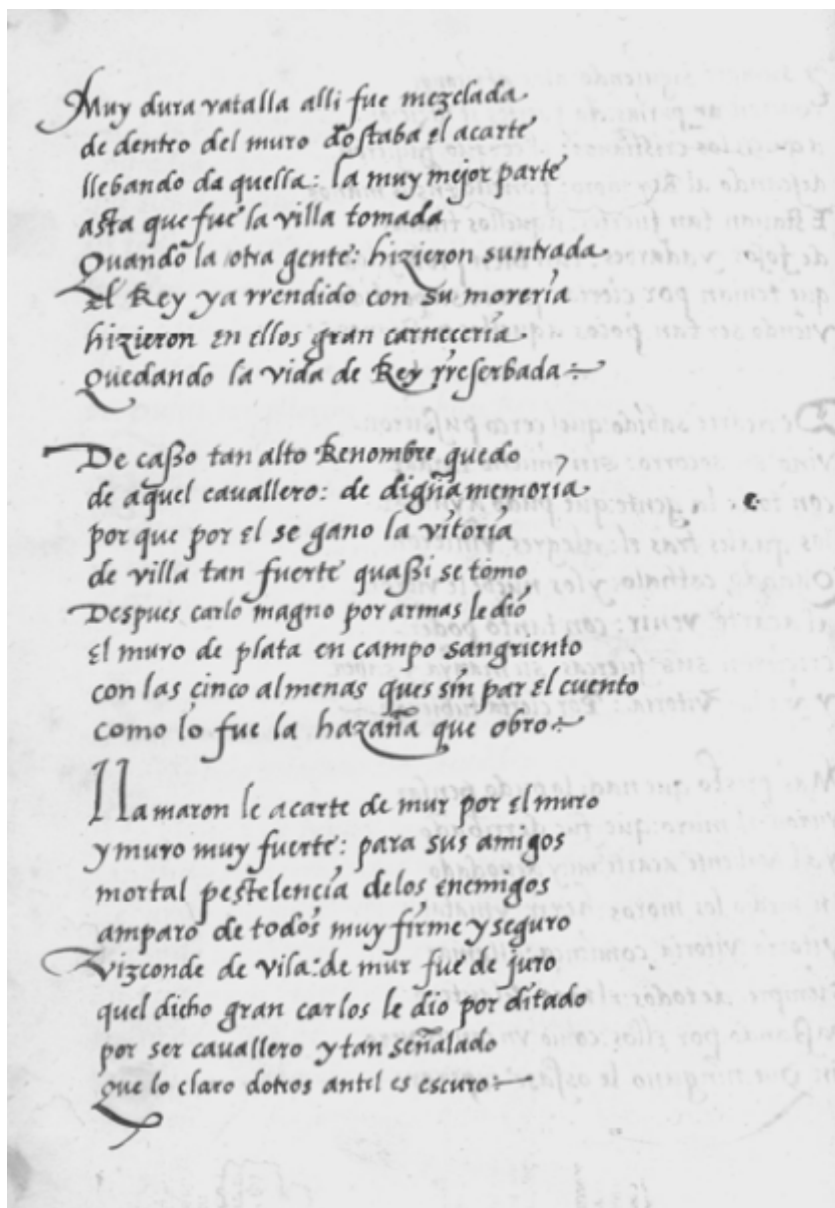 Muy dura vatalla alli fue mezclada
de dentro del muro dostaba el acarte
llebando da quella: la muy mejor parte
asta que fue la villa tomada
Quando la otra gente: hizieron suntrada
El Rey ya rrendido con su moreria
hizieron en ellos gran carneceria
Quedando la vida de Rey rreserbada

De casso tan alto Renombre quedo
de aquel cavallero: de digña memoria
por que por el se gano la vitoria
de villa tan fuerte quassi se tomo
Despues carlo magno por armas le dio
El muro de plata en campo sangriento
con las cinco almenas ques sin par el cuento
como lo fue la hazaña que obro

Llamaron le acarte de mur por el muro
y muro muy fuerte: para sus amigos
mortal pestelencia delos enemigos
amparo de todos muy firme y seguro
vizconde de vila: de mur fue de juro
quel dicho gran carlos le dio por ditado
por ser cavallero y tan señalado
Que lo claro dotros antel es escuro